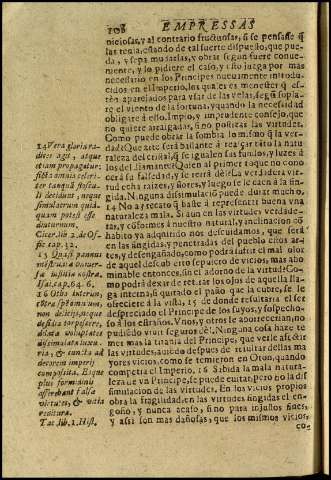 108 EMPRESSAS
niciosas, y al contrario fructuosas, si se pensasse q̃
las tenia, estando de tal suerte dispuesto, que pue-
da, y sepa mudarlas, y obrar segun fuere conve-
niente, y lo pidiere el caso, y esto juzga por mas
necessario en los Principes nuevamente introdu-
cidos en el Imperio, los quales es menester q̃ es-
tèn aparejados para usar de las velas, segũ sopla-
re el viento de la fortuna, y quando la necessidad
obligare à esto. Impio, y imprudente consejo, que
no quiere arraigadas, sino postizas las virtudes.
Como puede obrar la sombra lo mismo q̃ la ver-
dad? Que arte serà bastante à realçar tãto la natu-
raleza del cristal, q̃ se igualen sus fondos, y luzes à
los del diamante? Quien al primer toque no cono-
cerà su falsedad, y se reirà dèl? La verdadera vir-
tud echa raizes, y flores, y luego se le caen à la fin-
gida. Ninguna dissimulaciõ puede durar mucho.
14 No ay recato q̃ baste à representar buena una
naturaleza mala. Si aun en las virtudes verdade-
ras, y cõformes à nuestro natural, y inclinaciõ cõ
habito ya adquirido nos descuidamos, que serà
en las fingidas, y penetradas del pueblo estos artes,
y desengañado, como podrà sufrir el mal olor
de aquel descubierto sepulcro de vicios, mas abo-
minable entonces, sin el adorno de la virtud? Co-
mo podrà dexar de retirar los ojos de aquella lla-
ga interna, si quitado el paño que la cubre, se le
ofreciere à la vista, 15 de donde resultaria el ser
despreciado el Principe de los suyos, y sospecho-
so à los estraños. Unos, y otros le aborrecerian, no
pudiendo vivir seguros dèl. Ninguna cosa haze te-
mer mas la tirania del Principe, que verle afectar
las virtudes, aviendo despues de resultar dellas ma-
yores vicios, como se temieron en Oton, quando
competia el Imperio. 16 Sabida la mala natura-
leza de un Principe, se puede euitar, pero no la dis-
simulacion de las virtudes. En los vicios propios
obra la fragilidad, en las virtudes fingidas el en-
gaño, y nunca acaso, sino para injustos fines,
y assi son mas dañosas, que los mismos vicios
co-
14 Vera gloria ra-
dices agit, atque
etiam propagatur:
ficta omnia celeri-
ter tanquã floscu-
li decidunt, neque
simulatum quid-
quam potest esse
diuturnum.
Cicer. lib. 2. de Of-
fic. cap. 32.
15 Quasi pannus
mẽstruatæ univer-
sæ iustitiæ nostræ,
Isai. cap. 64. 6.
16 Otho interim,
contra spem omnium,
non delicijs, neque
desidia torpescere,
dilatæ voluptates
dissimulata luxu-
ria, & cuncta ad
decorem imperij
composita. Eoque
plus formidinis
afferebant falsæ
virtutes, & vitia
reditura.
Tac. lib. 1. Hist.